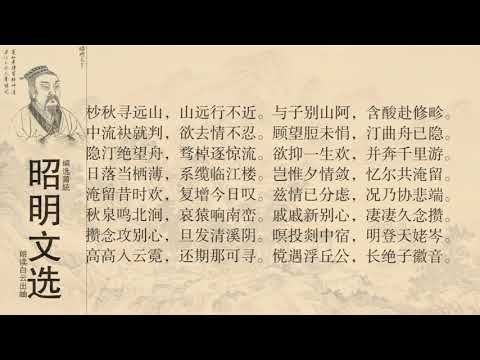 杪秋寻远山，山远行不近。与子别山阿，含酸赴修畛。
中流袂就判，欲去情不忍。顾望脰未悁，汀曲舟已隐。
隐汀绝望舟，骛棹逐惊流。欲抑一生欢，并奔千里游。
日落当栖薄，系缆临江楼。岂惟夕情敛，忆尔共淹留。
淹留昔时欢，复增今日叹。兹情已分虑，况乃协悲端。
秋泉鸣北涧，哀猿响南峦。戚戚新别心，凄凄久念攒。
攒念攻别心，旦发清溪阴。暝投剡中宿，明登天姥岑。
高高入云霓，还期那可寻。傥遇浮丘公，长绝子徽音。
编选萧统
昭明文选
朗读白云出岫